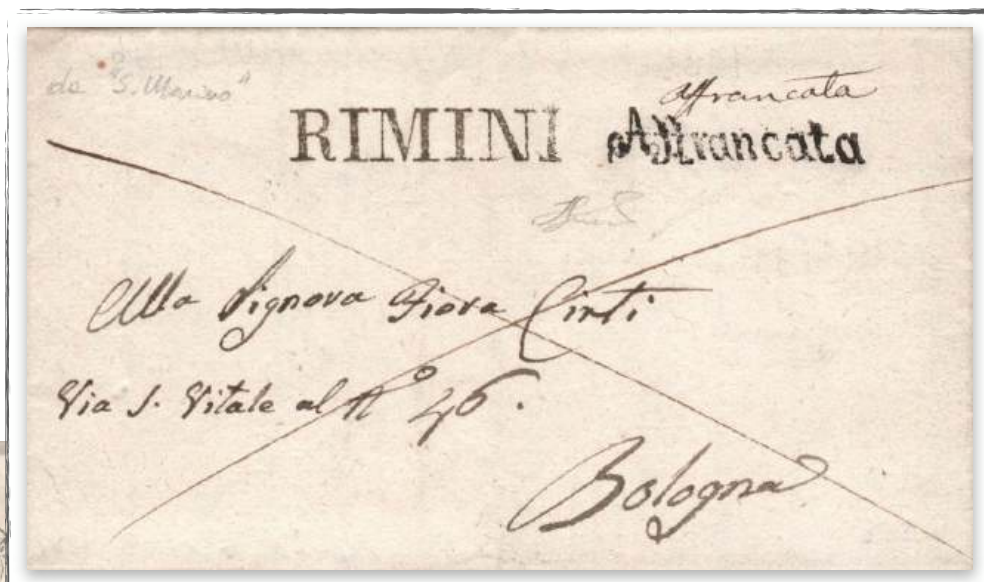 da "S. Marino"
affrancata
RIMINI Affrancata
Alla Signora Fiora Cirti
Via S. Vitale al N° 46.
Bologna